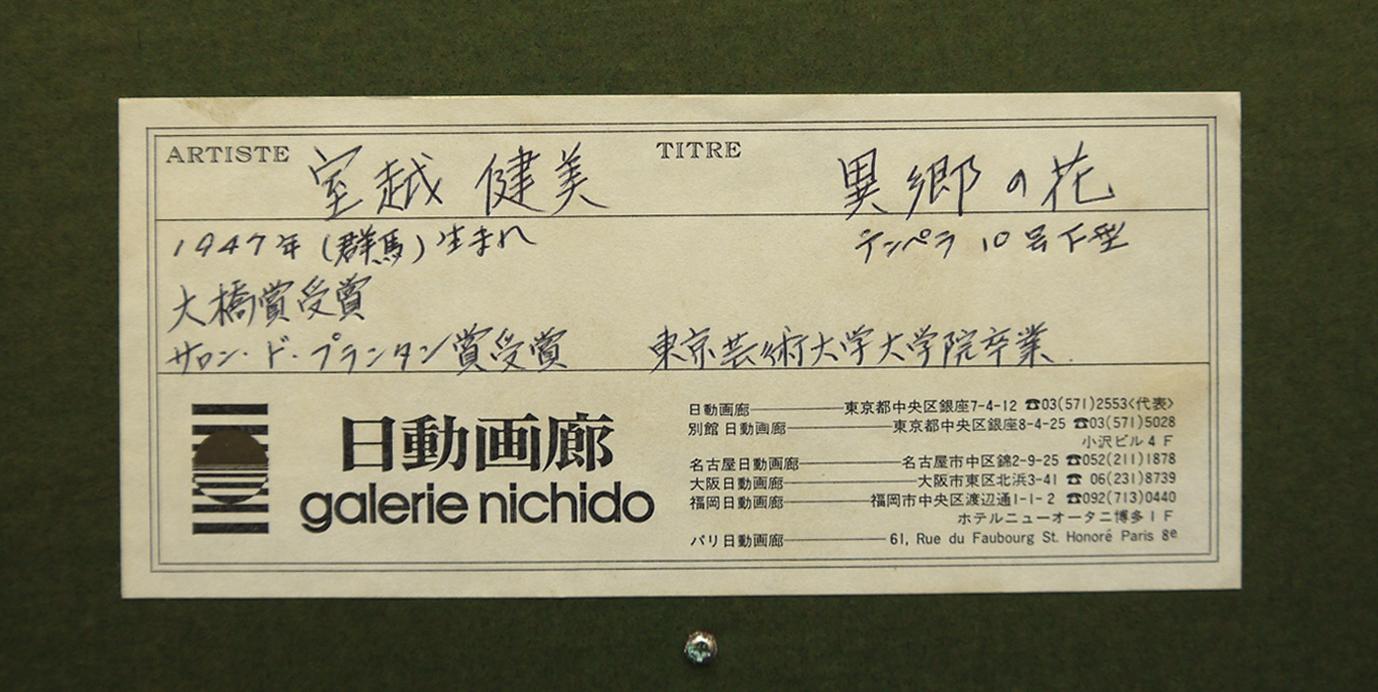 ARTISTE 室越 健美 TITRE 異郷の花
1947年 (群馬) 生まれ テンペラ 10号下型
大橋賞受賞
サロン・ド・プランタン賞受賞 東京芸術大学大学院卒業.
日動画廊
galerie nichido
日動画廊 東京都中央区銀座7-4-12 ☎03(571)2553<代表>
別館 日動画廊 東京都中央区銀座8-4-25 ☎03(571)5028
小沢ビル4F
名古屋日動画廊 名古屋市中区錦2-9-25 ☎052(211)1878
大阪日動画廊 大阪市東区北浜3-41 ☎06(231)8739
福岡日動画廊 福岡市中央区渡辺通1-1-2 ☎092(713)0440
ホテルニューオータニ博多1F
パリ日動画廊 61, Rue du Faubourg St. Honoré Paris 8e